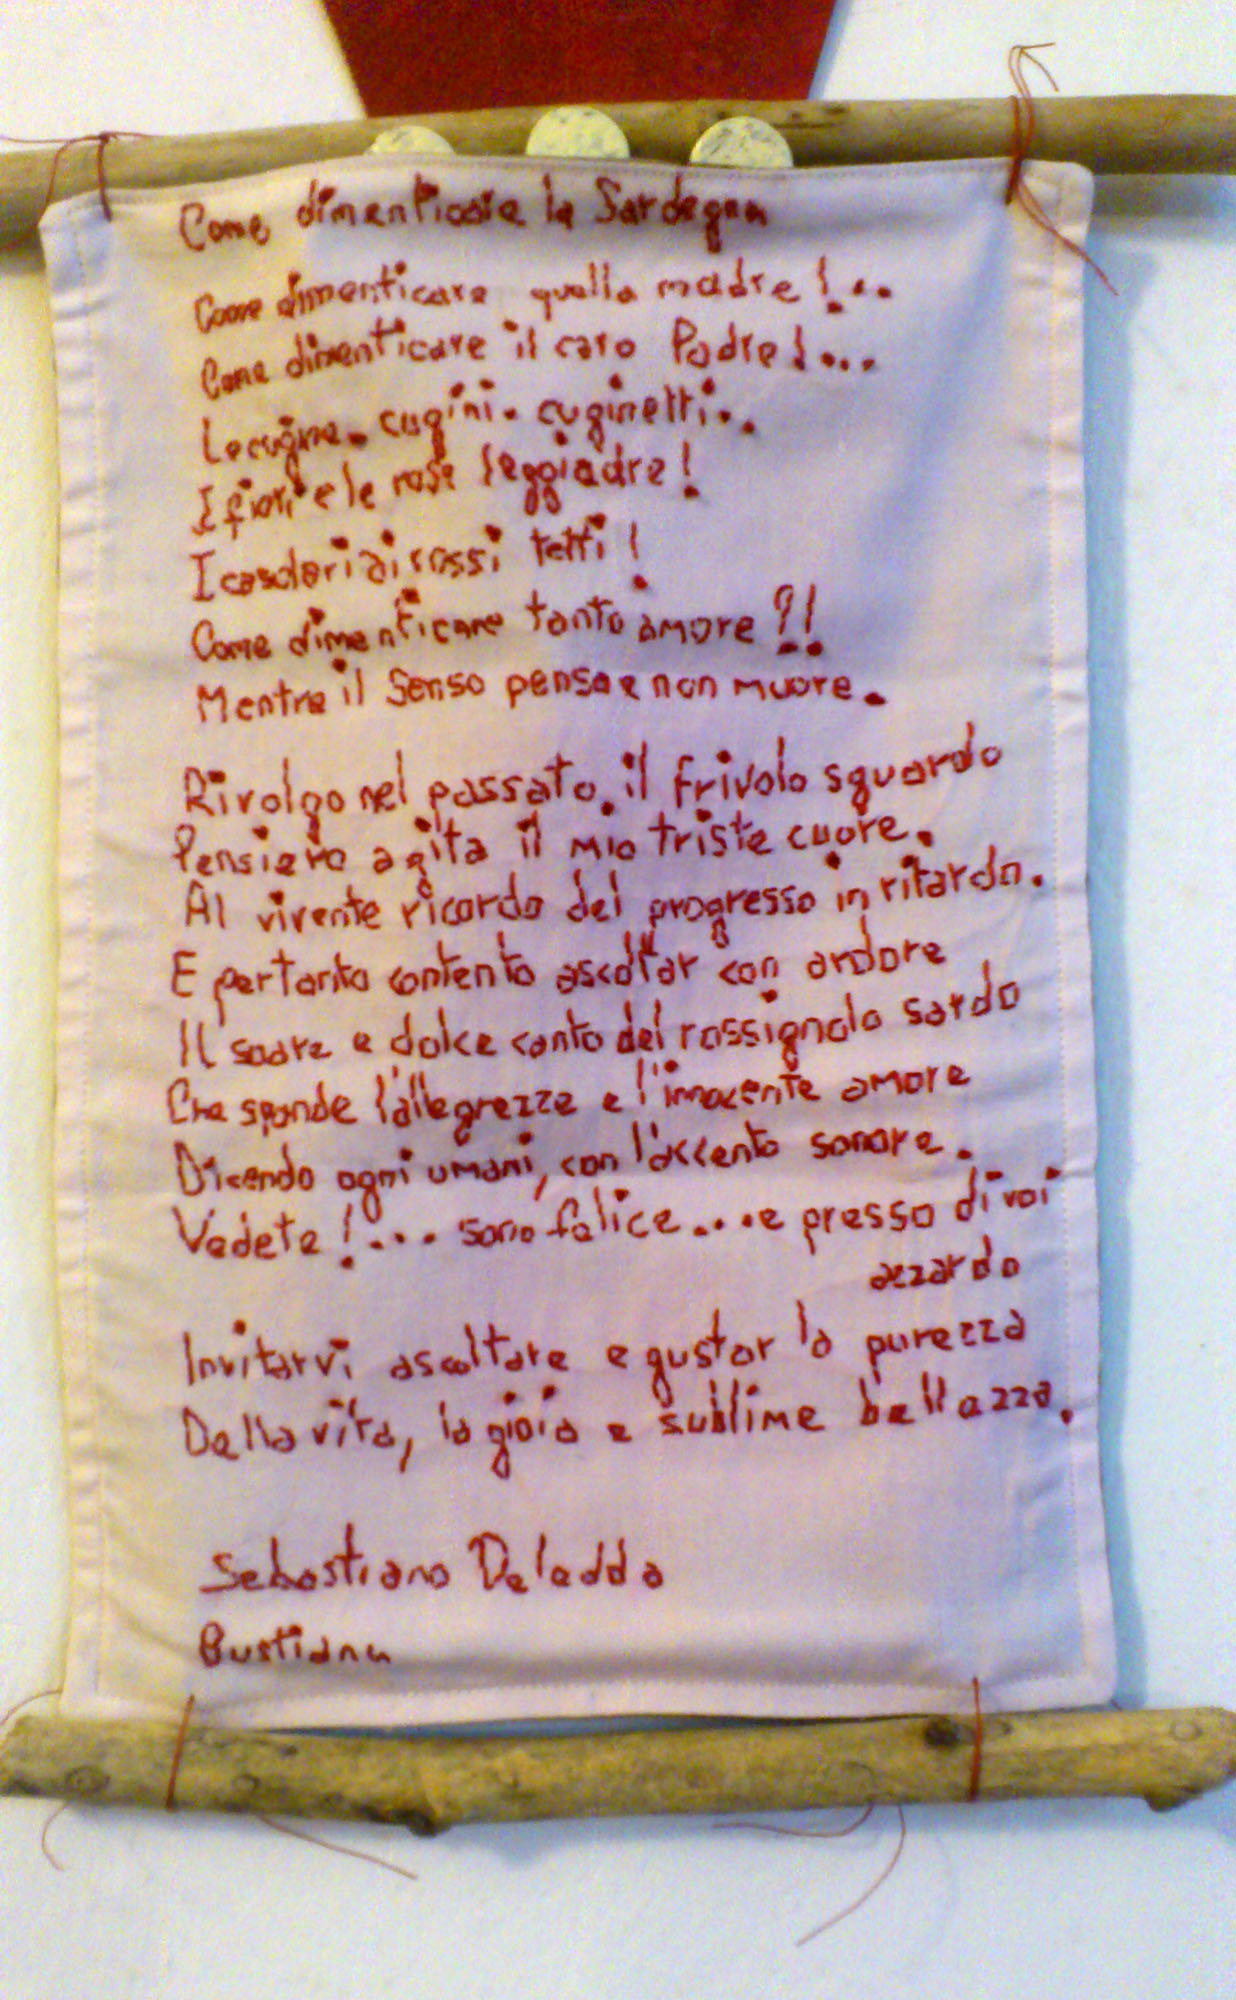 Come dimenticare la Sardegna
Come dimenticare quella madre!...
Come dimenticare il caro Padre!...
Le cugine. cugini. cuginetti..
I fiori e le rose leggiadre!
I casolari ai rossi tetti!
Come dimenticare tanto amore?!
Mentre il Senso pensa e non muore.
Rivolgo nel passato. il frivolo sguardo
Pensiero agita il mio triste cuore.
Al vivente ricordo del progresso in ritardo.
E pertanto contento ascoltar con ardore
Il soave e dolce canto del rossignolo sardo
Che spande l'allegrezze e l'innocente amore
Dicendo ogni umani, con l'accento sonore.
Vedete!... sono felice...e presso di voi
azzardo
Invitarvi ascoltare e gustar la purezza
Della vita, la gioia e sublime bellezza.
Sebastiano Deledda
Bustianu